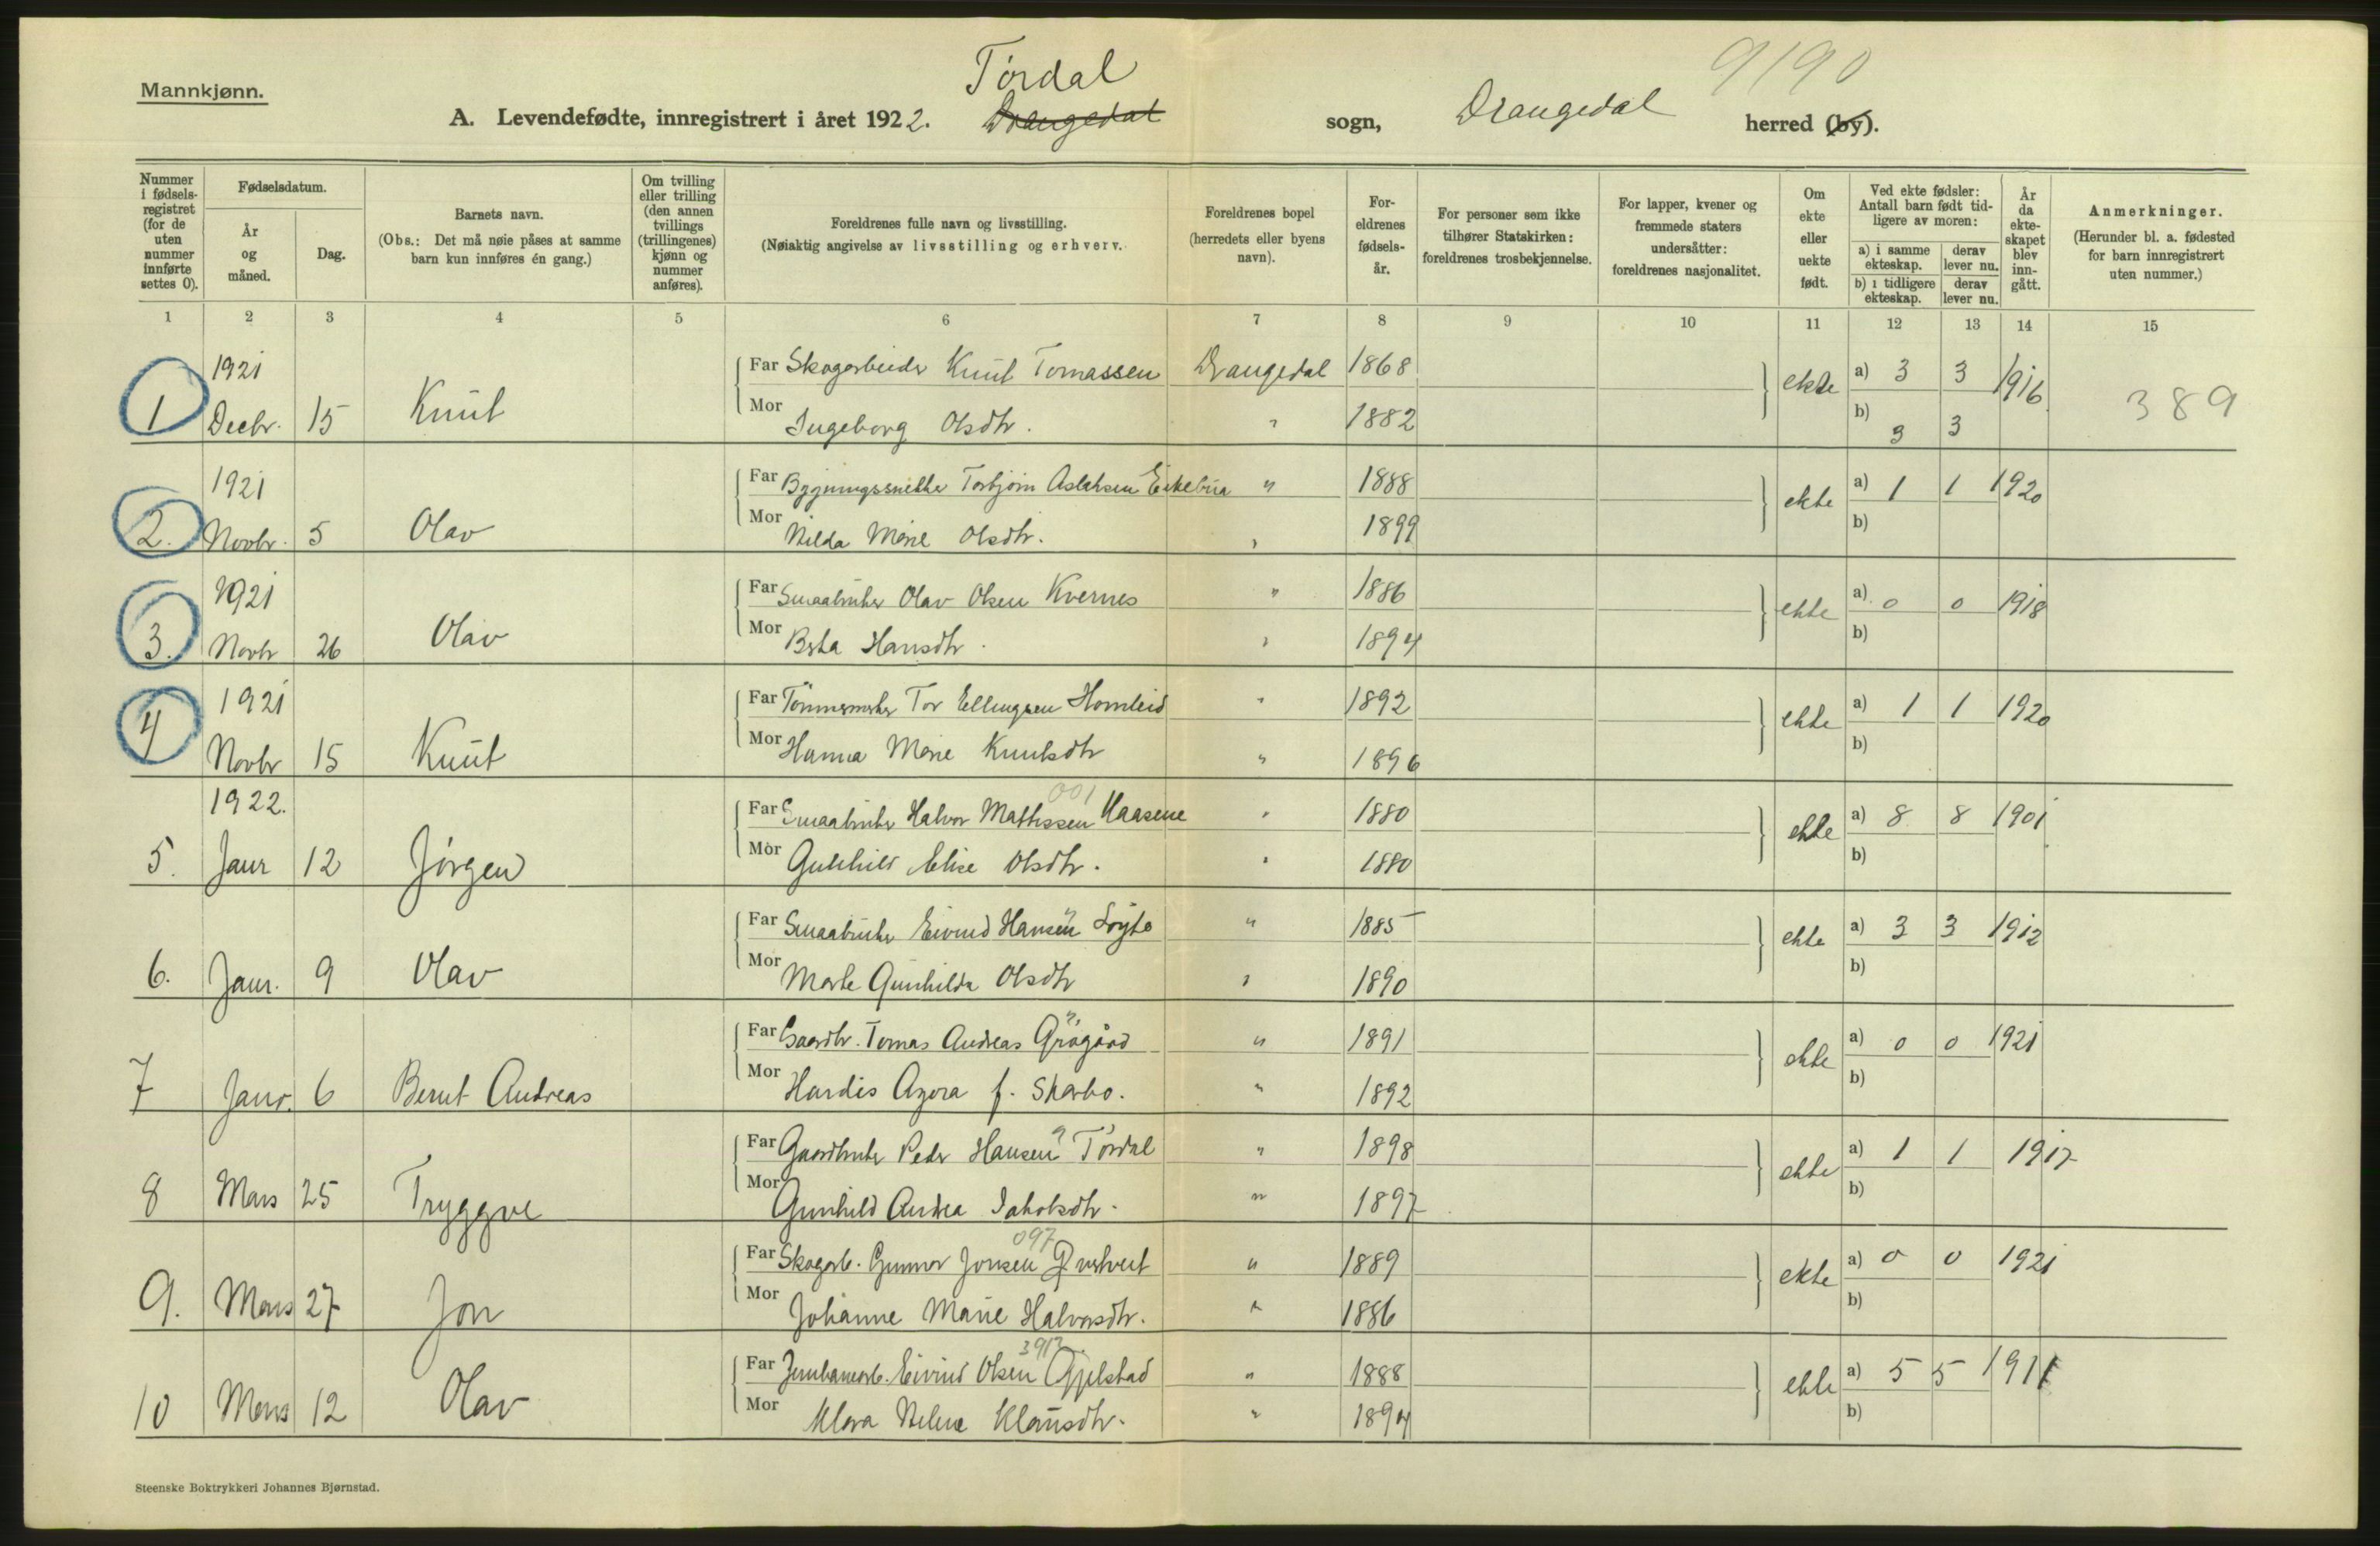 Mannkjønn.
9190
Tørdal
A. Levendefødte, innregistrert i året 1922. Drangedal sogn, Drangedal herred (by).
Nummer i fødsels- registret (for de uten nummer innførte settes 0).
Fødselsdatum.
År og måned.
Dag.
Barnets navn.
(Obs.: Det må nøie påses at samme barn kun innføres én gang.)
Om tvilling eller trilling (den annen tvillings (trillingenes) kjønn og nummer anføres).
Foreldrenes fulle navn og livsstilling.
(Nøiaktig angivelse av livsstilling og erhverv.
Foreldrenes bopel (herredets eller byens navn).
For- eldrenes fødsels- år.
For personer som ikke tilhører Statskirken: foreldrenes trosbekjennelse.
For lapper, kvener og fremmede staters undersåtter: foreldrenes nasjonalitet.
Om ekte eller uekte født.
Ved ekte fødsler: Antall barn født tid- ligere av moren:
a) i samme ekteskap.
derav lever nu.
b) i tidligere ekteskap.
derav lever nu.
År da ekte- skapet blev inn- gått.
Anmerkninger.
(Herunder bl. a. fødested for barn innregistrert uten nummer.)
1 2 3 4 5 6 7 8 9 10 11 12 13 14 15
1921 Far Skogarbeider Knut Tomassen Drangedal 1868 ekte a) 3 3 1916
1 Decbr. 15 Knut Mor Ingeborg Olsdtr. " 1882 b) 3 3 389
1921 Far Torbjørn Aslaksen Eikebua " 1888 ekte a) 1 1 1920
2. Novbr. 5 Olav Mor Hilda Marie Olsdtr. " 1899 b)
1921 Far Smaabruker Olav Olsen Kvernes " 1886 ekte a) 0 0 1918
3. Novbr 26 Olav Mor Berta Hansdtr. " 1894 b)
1921 Far Tømmermerker Tor Ellingsen Homleid " 1892 ekte a) 1 1 1920
4 Novbr 15 Knut Mor Hanna Marie Knutsdtr " 1896 b)
1922. 001
Far Smaabruker Halvor Mathissen Haasene " 1880 ekte a) 8 8 1901
5. Janr 12 Jørgen Mor Gunhild Elise Olsdtr. " 1880 b)
Far Smaabruker Eivind Hansen " 1885 ekte a) 3 3 1912
6. Janr. 9 Olav Mor Marte Gunhilda Olsdtr " 1890 b)
Far Gaardbr. Tomas Andreas " 1891 ekte a) 0 0 1921
7 Janr. 6 Bernt Andreas Mor Hardis Agora f. Skarbo. " 1892 b)
Far Gaardbruker Peder Hansen Tørdal " 1898 ekte a) 1 1 1917
8 Mars 25 Tryggve Mor Gunhild Andrea Jakobsdtr. " 1897 b)
097
Far Skogarb. Gunnar Jonsen " 1889 ekte a) 0 0 1921
9. Mars 27 Jon Mor Johanne Marie Halvorsdtr. " 1886 b)
Far Jernbanearb. Eivind Olsen Gjelstad " 1888 ekte a) 5 5 1911
10 Mars 12 Olav Mor Klara Helene Klausdtr. " 1894 b)
Steenske Boktrykkeri Johannes Bjørnstad.